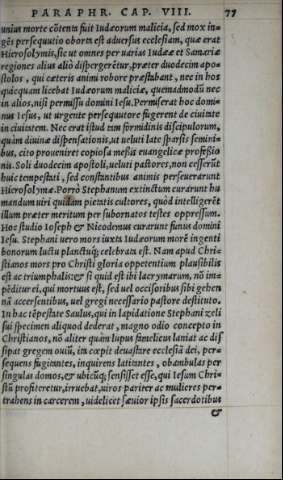 PARAPHR. CAP. VIII. 77
unius morte cōtenta fuit Iudæorum malicia, sed mox in-
gēs persequutio oborta est aduersus ecclesiam, quæ erat
Hierosolymis, sic ut omnes per uarias Iudææ et Samariæ
regiones alius aliò dispergerētur, præter duodecim apo-
stolos, qui cæteris animi robore præstabant, nec in hos
quicquam licebat Iudæorum maliciæ, quemadmodū nec
in alios, nisi permissu domini Iesu. Permiserat hoc domi-
nus Iesus, ut urgente persequutore fugerent de ciuitate
in ciuitatem. Nec erat istud tam formidinis discipulorum,
quàm diuinæ dispensationis, ut ueluti late sparsis semini-
bus, citò proueniret copiosa messis euangelicæ professio
nis. Soli duodecim apostoli, ueluti pastores, non cesserūt
huic tempestati, sed constantibus animis perseuerarunt
Hierosolymæ. Porrò Stephanum extinctum curarunt hu
mandum uiri quidam pietatis cultores, quòd intelligerēt
illum præter meritum per subornatos testes oppressum.
Hoc studio Ioseph & Nicodemus curarunt funus domini
Iesu. Stephani uero mors iuxta Iudæorum morē ingenti
bonorum luctu planctuq; celebrata est. Nam apud Chri-
stianos mors pro Christi gloria oppetentium plausibilis
est ac triumphalis: & si quid est ibi lacrymarum, nō im-
pēditur ei, qui mortuus est, sed uel occisoribus sibi gehen
nā accersentibus, uel gregi necessario pastore destituto.
In hac tēpestate Saulus, qui in lapidatione Stephani zeli
sui specimen aliquod dederat, magno odio concepto in
Christianos, nō aliter quàm lupus famelicus laniat ac dis
sipat gregem ouiū, ita cœpit deuastare ecclesiā dei, per-
sequens fugientes, inquirens latitantes, obambulas per
singulas domos, & ubicūq; sensisset esse, qui Iesum Chri-
stū profiteretur, irruebat, uiros pariter ac mulieres per-
trahens in carcerem, uidelicet sæuior ipsis sacerdotibus
&